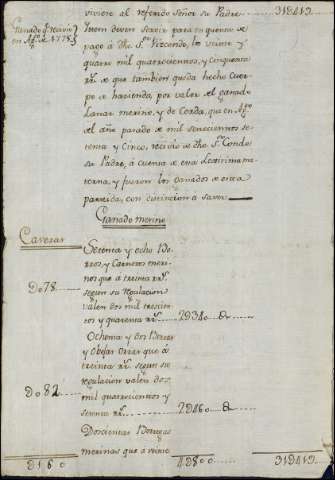 viviere al referido Señor su Padre 319419
Ganado q.e recivio
en Ag.to de 1775
Item deven servir para en quenta de
pago a dho S.or Vizconde, los veinte y
quatro mil quatrocientos, y cinquenta
rr.s de que tambien queda hecho Cuer-
po de hacienda, por valor del ganado
Lanar merino, y de Cerda, que en Ag.to
del año pasado de mil setecientos se-
tenta y Cinco, recivio de dho S.or Conde
su Padre, á cuenta de su Lexitima ma-
terna, y fueron los Ganados de esta
partida, con distincion a saver
Ganado merino
Cavezas
Setenta y ocho Bo-
rros y Carneros meri-
nos que a treinta rr.s
D078
segun su regulacion
valen dos mil trescien-
tos y quarenta rr.s 2D340
Ochenta y dos Borras
y Obejas Orras que á
treinta rr.s segun su
D082
Regulacion valen dos
mil quatrocientos y
sesenta rr.s 2D460
Doscientas Borregas
merinas que a veinte
D160 4D800 319419